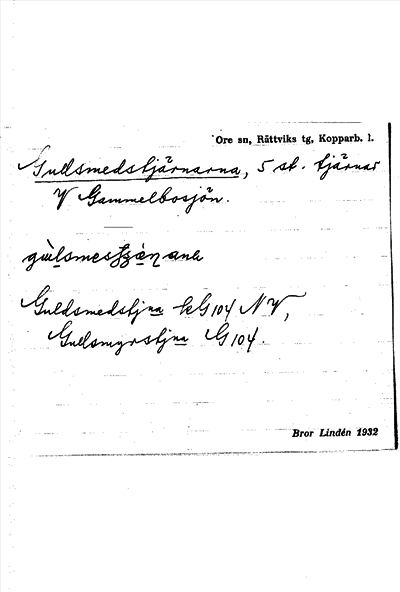 Ore sn, Rättviks tg, Kopparb. l.
Gullsmedstjärnarna, 5 st. tjärnar
V Gammelbosjön.
Guldsmedstjna kG104 NV,
Gullsmyrstjna G104.
Bror Lindén 1932